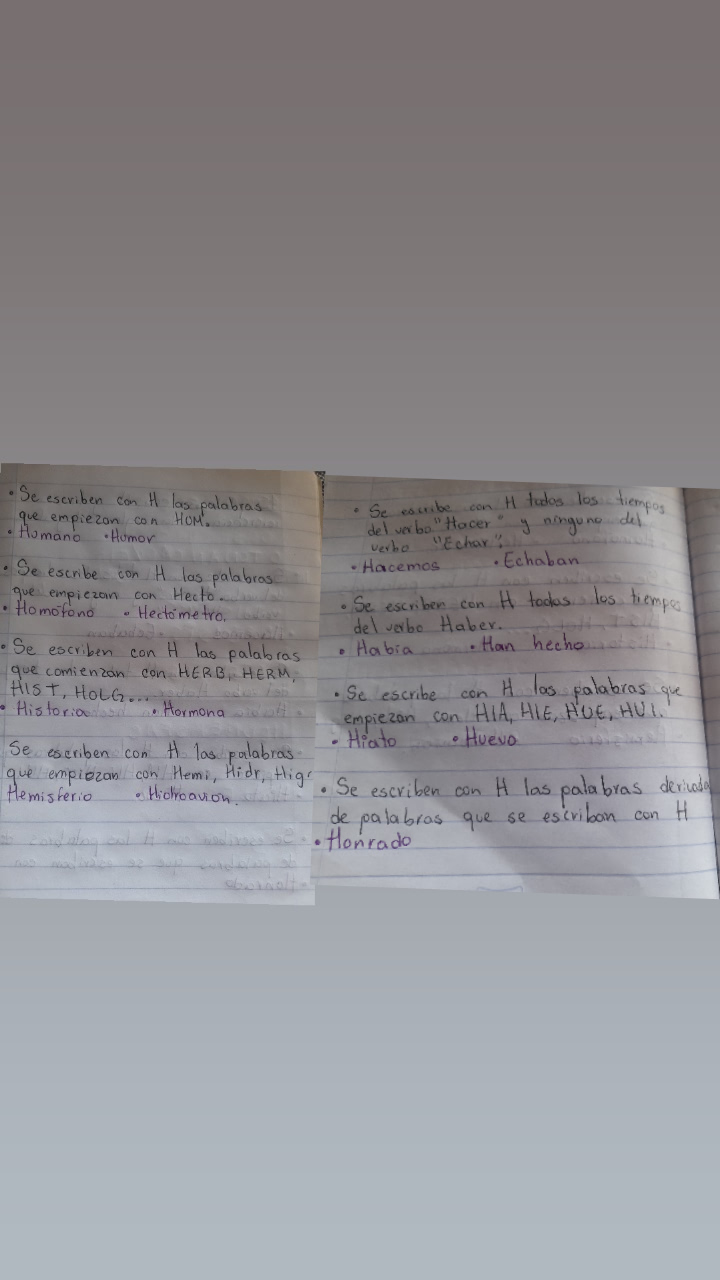 • Se escriben con H las palabras
que empiezan con HOM.
• Humano • Humor
• Se escribe con H las palabras
que empiezan con Hecto.
• Homófono • Hectómetro.
• Se escriben con H las palabras
que comienzan con HERB, HERM,
HIST, HOLG...
• Historia • Hormona
Se escriben con H las palabras
que empiezan con Hemi, Hidr, Higr
Hemisferio • Hidroavion.
• Se escribe con H todos los tiempos
del verbo "Hacer" y ninguno del
verbo "Echar".
• Hacemos • Echaban
• Se escriben con H todas los tiempos
del verbo Haber.
• Había • Han hecho
• Se escribe con H las palabras que
empiezan con HIA, HIE, HUE, HUI.
• Hiato • Huevo
• Se escriben con H las palabras derivada
de palabras que se escriban con H
• Honrado